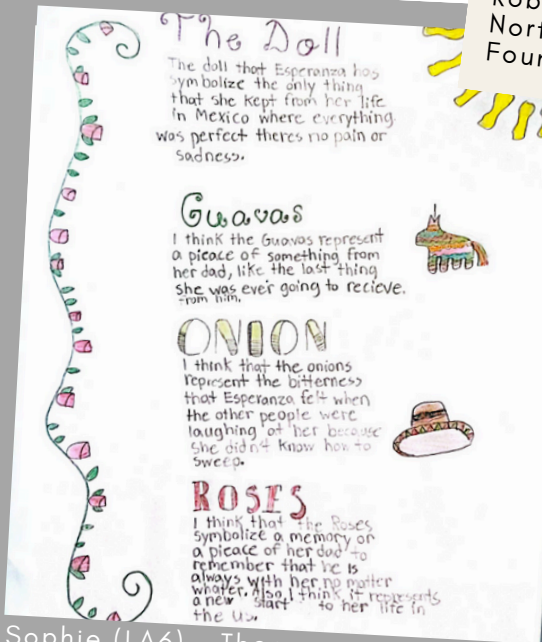 The Doll
The doll that Esperanza has
symbolize the only thing
that she kept from her life
in Mexico where everything
was perfect theres no pain or
sadness.
Guavas
I think the Guavas represent
a picace of something from
her dad, like the last thing
she was ever going to recieve.
from him.
ONION
I think that the onions
represent the bitterness
that Esperanza felt when
the other people were
laughing at her because
she didn't know how to
sweep.
ROSES
I think that the Roses
symbolize a memory or
a picace of her dad to
remember that he is
always with her no matter
whater. Also I think it represents
a new "start" to her life in
the Us.
Sophie (LA6)